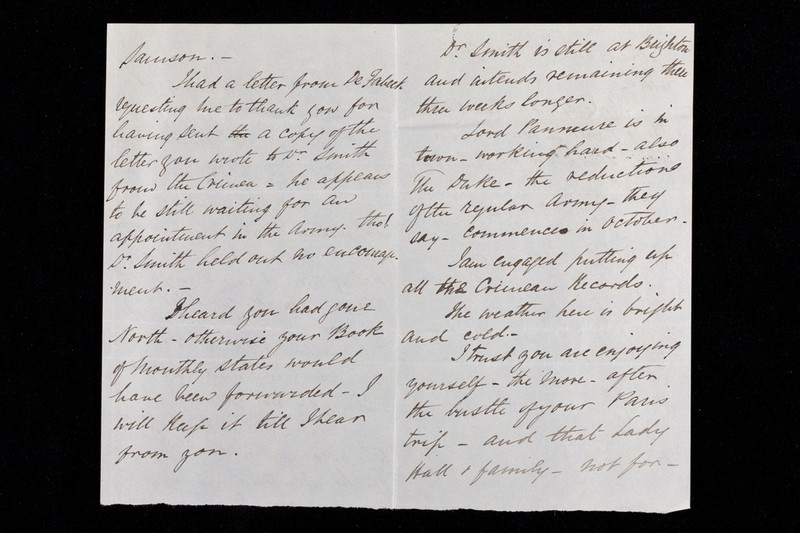 Samson. -
I had a letter from De
requesting me to thank you for
having sent the a copy of the
letter you wrote to Dr. Smith
from the Crimea = he appears
to be still waiting for an
appointment in the Army. tho'
Dr. Smith held out no encourage-
ment. -
I heard you had gone
North - otherwise your Book
of Monthly States would
have been forwarded - I
will keep it till I hear
from you.
Dr. Smith is still at Brighton
and intends remaining there
three weeks longer.
Lord Panmure is in
town - working hard - also
The Duke - the reductions
of the regular Army - they
say - commences in October -
I am engaged putting up
all the Crimean Records.
The weather here is bright
and cold. -
I trust you are enjoying
yourself - the more - after
the bustle of your Paris
trip - and that Lady
Hall & family - not for -